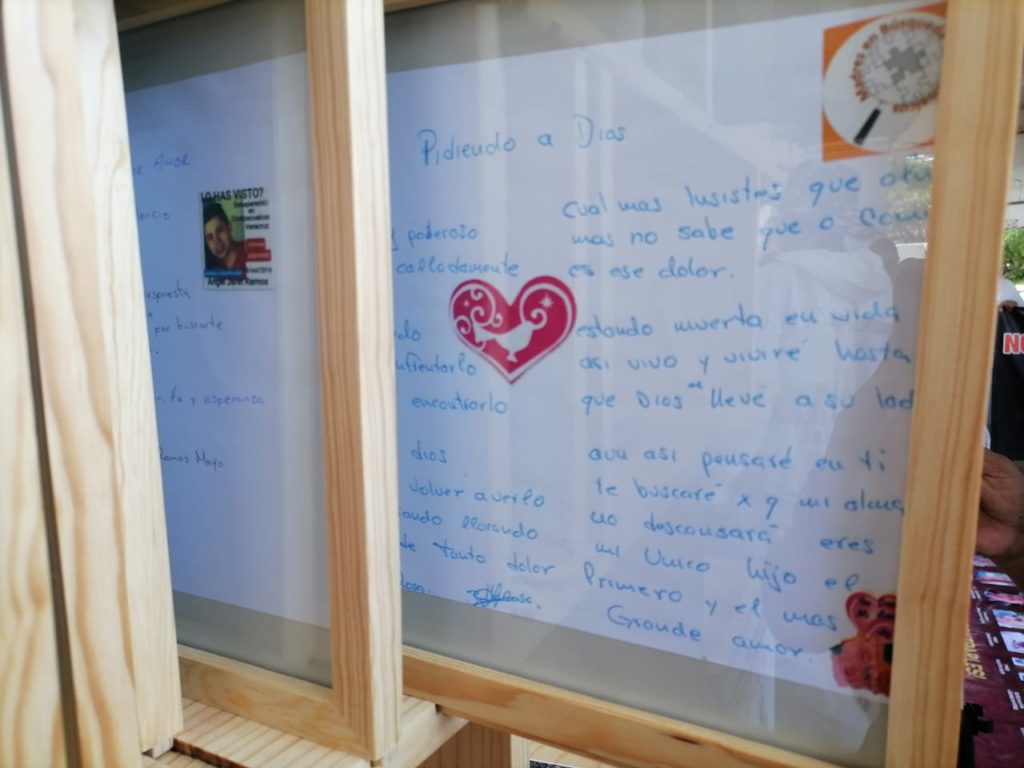 Amor
espuesta
por buscarte
fe y esperanza
Ramos Mayo
¿LO HAS VISTO?
Desaparecido
en
Veracruz
Angel Jaret Ramos
Madres en Búsqueda
Pidiendo a Dios
y poderoso
calladamente
do
nfrentarlo
encontrarlo
dios
volver averlo
ando llorando
de tanto dolor
Rosa.
cual mas lusistas que
mas no sabe que o
es ese dolor.
estando muerta en vida
asi vivo y viviré hasta
que Dios me lleve a su lad
aun asi pensaré en ti
te buscaré x q mi alma
no descansará eres
mi Unico hijo el
Primero y el mas
Grande amor.
NO